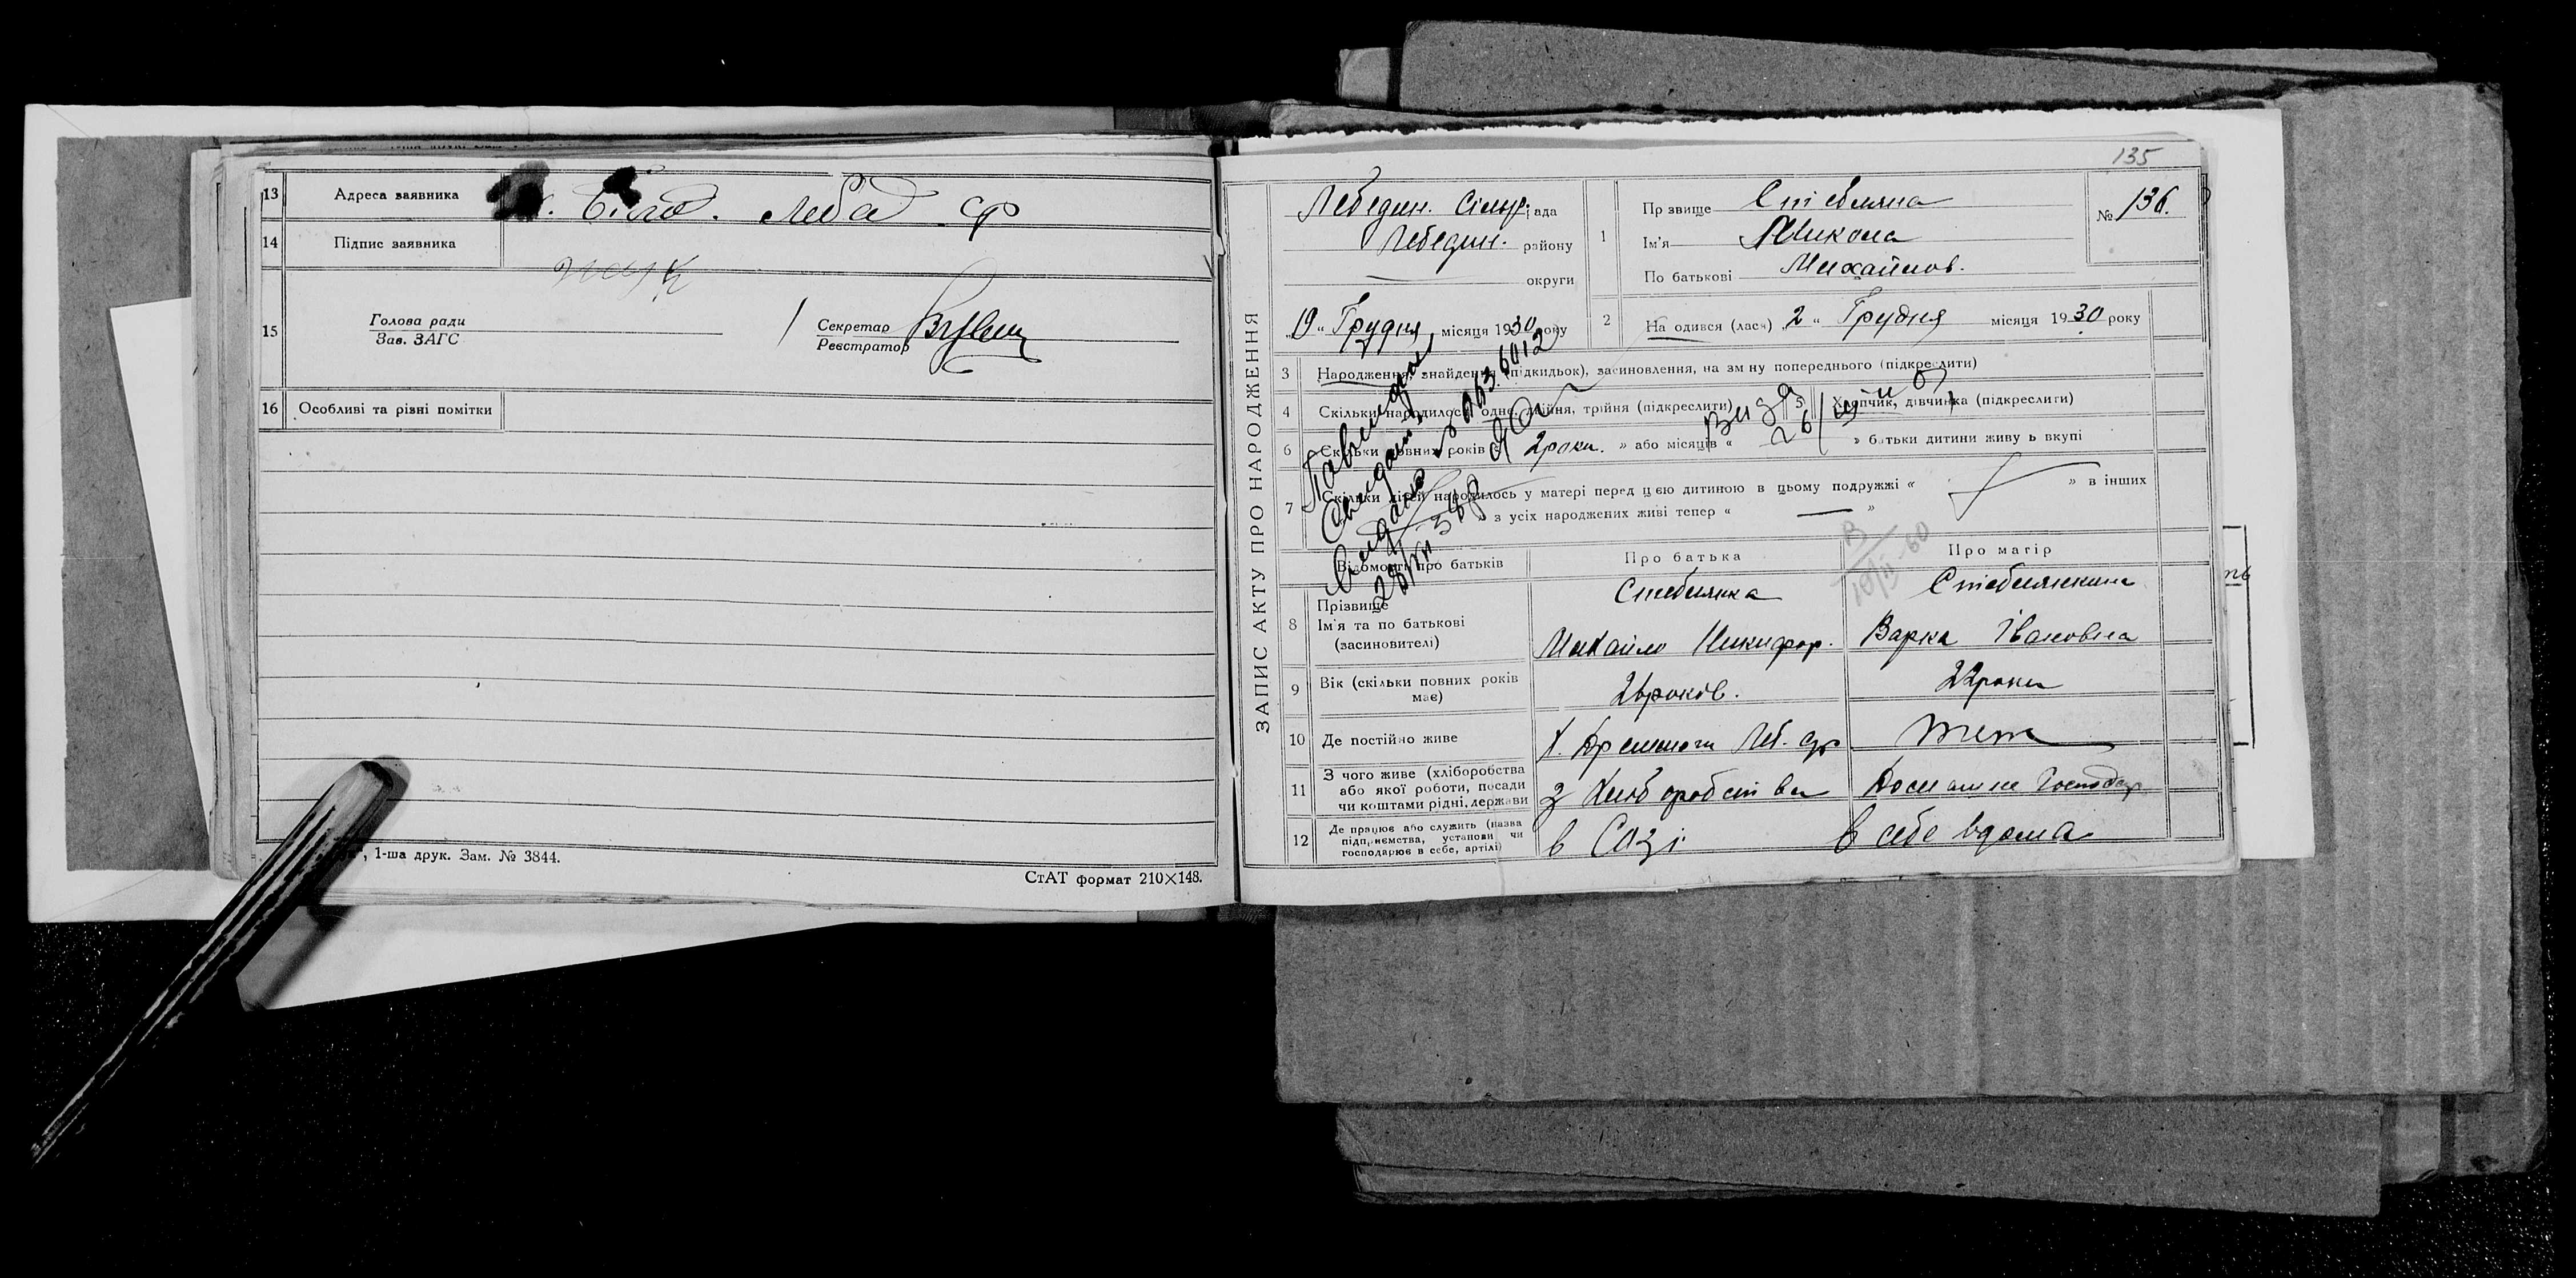 13 Адреса заявника
Лебед
14 Підпис заявника
15 Голова ради
Зав. ЗАГС
Секретар
Реєстратор
16 Особливі та різні помітки
, 1-ша друк. Зам. № 3844.
СтАТ формат 210×148.
135
ЗАПИС АКТУ ПРО НАРОДЖЕННЯ
Лебедин. Сільр. ада
Лебедин. району
округи
„19“ Грудня місяця 1930 року
1 Пр звище
Ім'я Микола
По батькові Михайлов.
№ 136.
2 На одився (лась) „2“ Грудня місяця 1930 року
3 Народження, знайдення (підкидьок), засиновлення, на зм ну попереднього (підкреслити)
4 Скільки народилось одно, двійня, трійня (підкреслити)
5 Хлопчик, дівчинка (підкреслити)
6 Скільки повних років « 2 роки. » або місяців « » батьки дитини живу ь вкупі
7 Скільки дітей народилось у матері перед цією дитиною в цьому подружжі « » в інших
» з усіх народжених живі тепер « — »
Відомості про батьків
Про батька
Про матір
8 Прізвище
Ім'я та по батькові
(засиновителі)
Стеблянка
Михайло Никифор.
Стеблянкина
Варка Івановна
9 Вік (скільки повних років
має)
26 років.
22 роки
10 Де постійно живе
Х. Леб. ср
теж
11 З чого живе (хліборобства
або якої роботи, посади
чи коштами рідні, держави
З Хліборобства
Домашнє Господар
12 Де працює або служить (назва
підприємства, установи чи
господарює в себе, артілі)
в Созі
в себе вдома